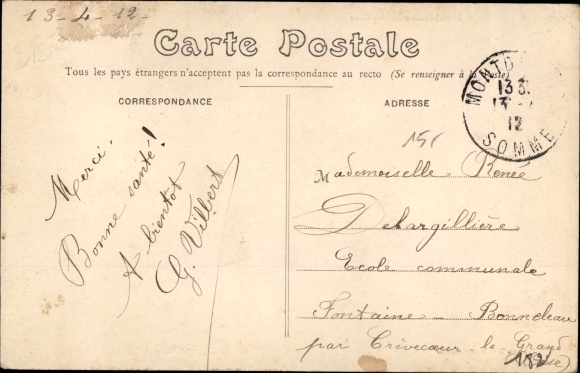 13-4-12-
Carte Postale
Tous les pays étrangers n'acceptent pas la correspondance au recto (Se renseigner à la Poste)
CORRESPONDANCE
ADRESSE
13
12
SOMME
Merci.
Bonne santé!
A bientot
G. Vilbert
Mademoiselle Renée
Delargillière
Ecole communale
Fontaine - Bonneleau
par Crèvecœur-le-Grand
(Oise)
182